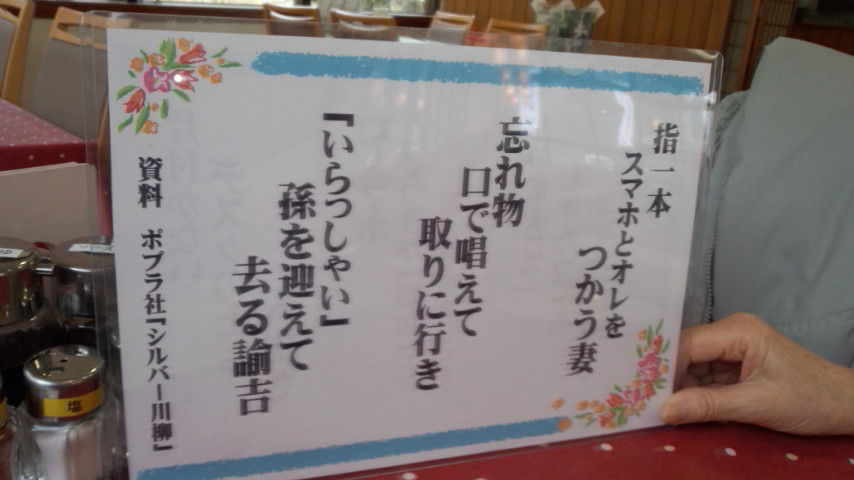 指一本
スマホとオレを
つかう妻
忘れ物
口で唱えて
取りに行き
『いらっしゃい』
孫を迎えて
去る諭吉
資料 ポプラ社『シルバー川柳』
塩